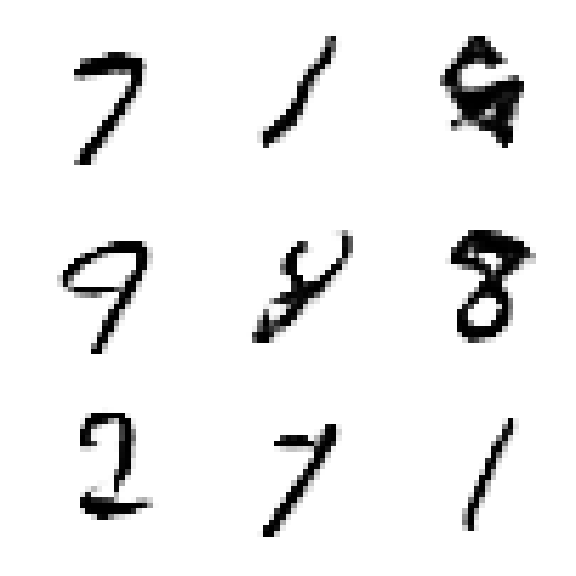 7 1
9 8 8
2 7 1